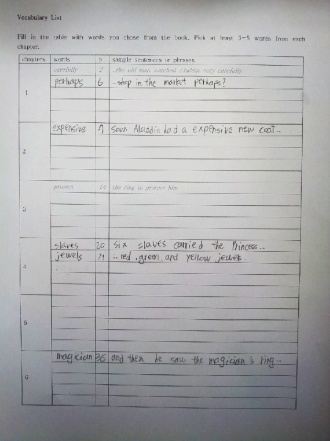 Vocabulary List
Fill in the table with words you chose from the book. Pick at least 3~5 words from each
chapter.
chapter words p sample sentences or phrases
carefully 2 carefully
1 perhaps 6 shop in the market perhaps?
2 expensive 9 Soon Aladdin had a expensive new coat...
3 protect the ring to protect him
4 slaves 20 six slaves carried the Princess..
jewels 21 ...red, green and yellow jewels.
5
6 magician 35 and then he saw the magician's ring...